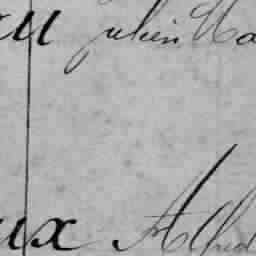 eu Julien Ma
ux Alfred